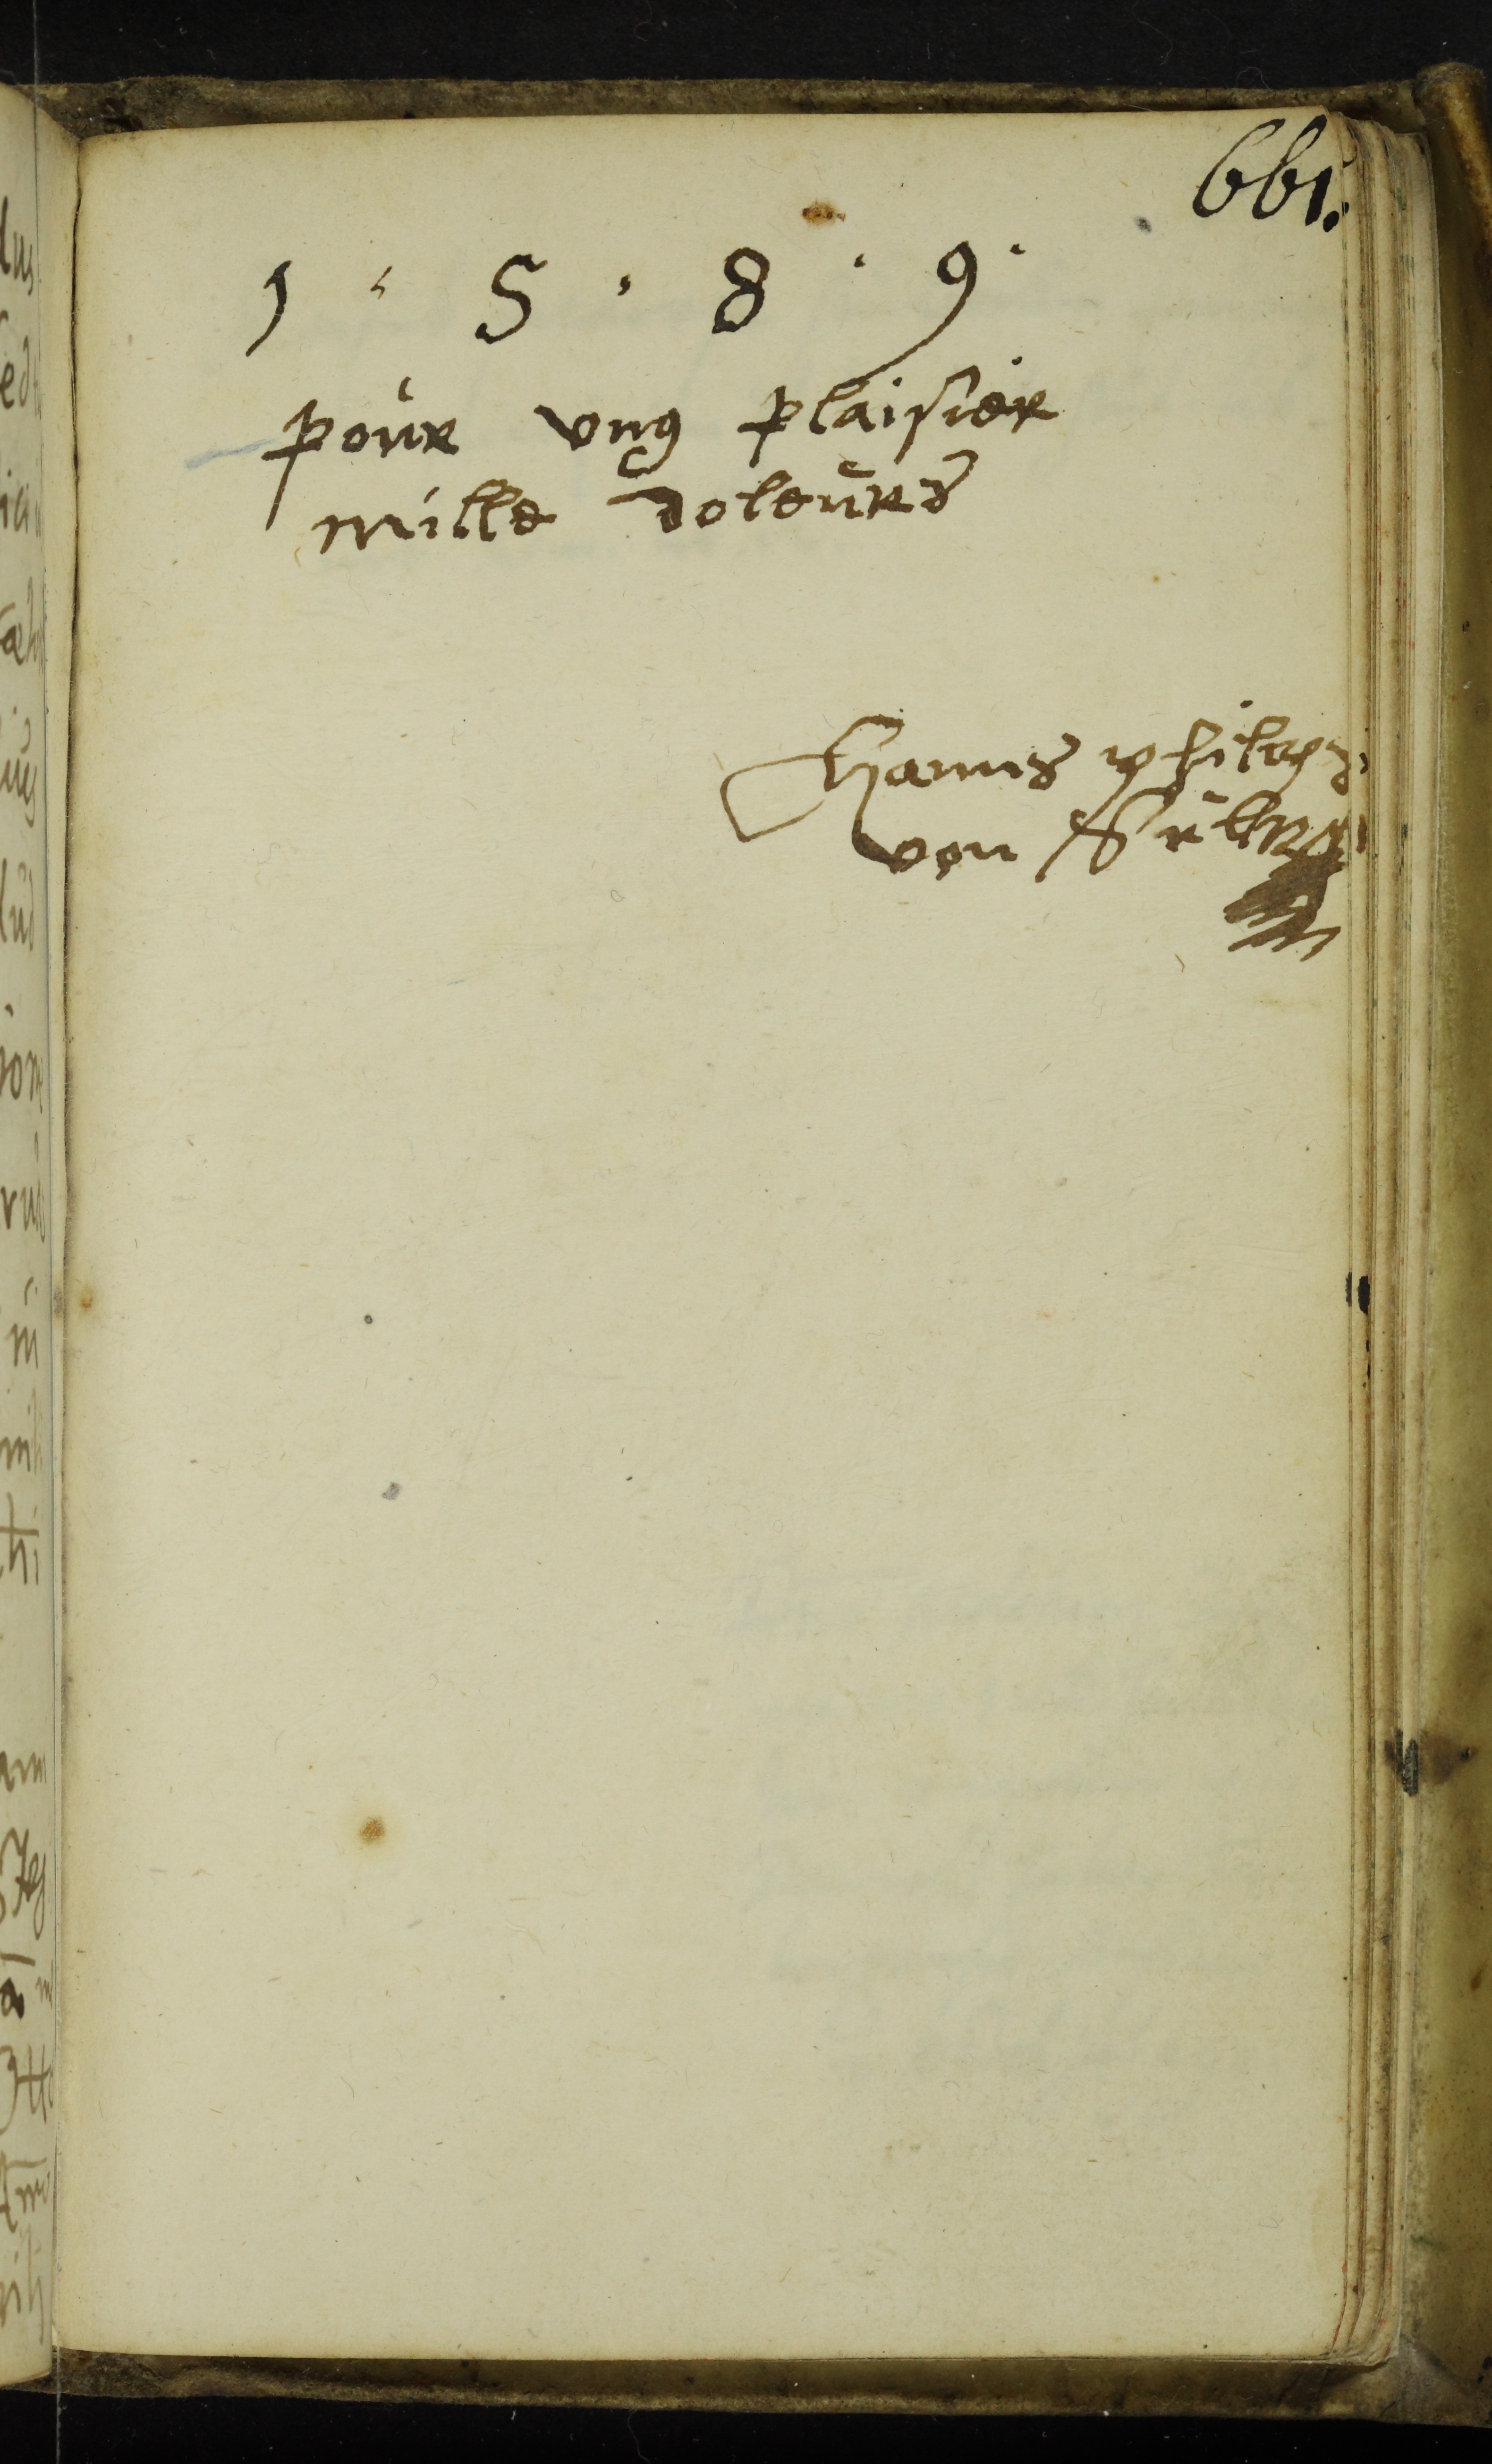 661.
1 · 5 · 8 · 9 ·
pour ung plaisier
mille doleurs
Hanns philips
von